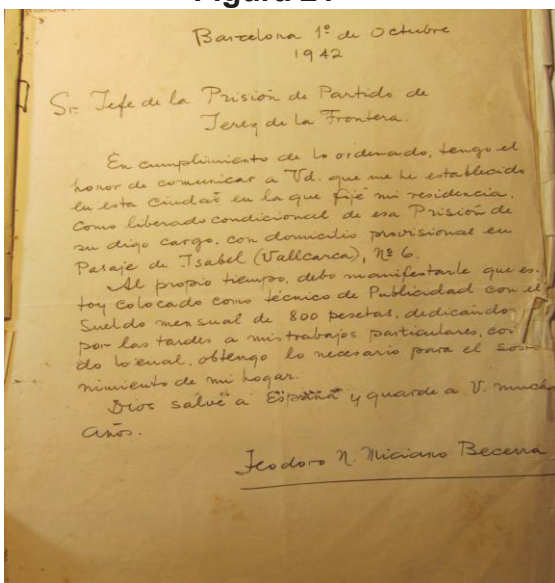 Figura 21
Barcelona 1º de Octubre
1942
Sr. Jefe de la Prisión de Partido de
Jerez de la Frontera.
En cumplimiento de lo ordenado, tengo el
honor de comunicar a Vd. que me he establecido
en esta Ciudad en la que fijé mi residencia,
como liberado condicional de esa Prisión de
su digo cargo, con domicilio provisional en
Pasaje de Isabel (Vallcarca), Nº 6.
Al propio tiempo, debo manifestarle que es-
toy colocado como técnico de Publicidad con el
Sueldo mensual de 800 pesetas, dedicando
por las tardes a mis trabajos particulares, con
do lo cual, obtengo lo necesario para el sos-
nimiento de mi hogar.
Dios salve a España y guarde a V. mucho
años.
Teodoro N. Miciano Becerra